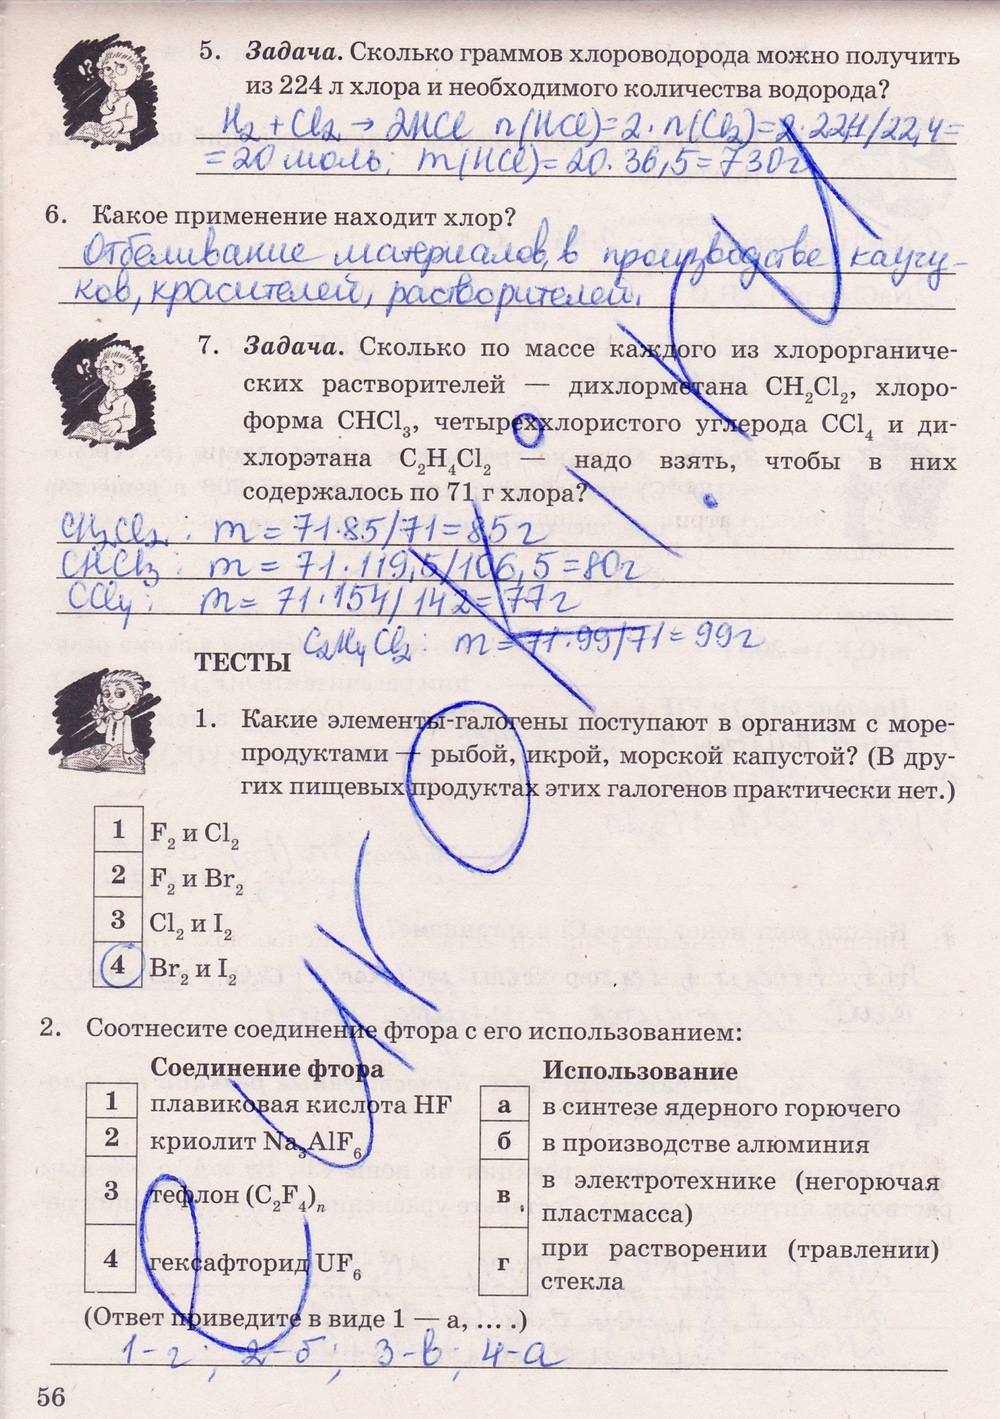 5. Задача. Сколько граммов хлороводорода можно получить
из 224 л хлора и необходимого количества водорода?
H₂ + Cl₂ → 2HCl n(HCl)=2·n(Cl₂)=2·224/22,4=
=20 моль; m(HCl)=20·36,5=730г
6. Какое применение находит хлор?
Отбеливание материалов, в производстве каучу-
ков, красителей, растворителей.
7. Задача. Сколько по массе каждого из хлорорганиче-
ских растворителей — дихлорметана CH₂Cl₂, хлоро-
форма CHCl₃, четыреххлористого углерода CCl₄ и ди-
хлорэтана C₂H₄Cl₂ — надо взять, чтобы в них
содержалось по 71 г хлора?
CH₂Cl₂: m = 71·85/71=85г
CHCl₃: m = 71·119,5/106,5=80г
CCl₄: m= 71·154/142=77г
C₂H₄Cl₂: m=71·99/71=99г
ТЕСТЫ
1. Какие элементы-галогены поступают в организм с море-
продуктами — рыбой, икрой, морской капустой? (В дру-
гих пищевых продуктах этих галогенов практически нет.)
1 F₂ и Cl₂
2 F₂ и Br₂
3 Cl₂ и I₂
4 Br₂ и I₂
2. Соотнесите соединение фтора с его использованием:
Соединение фтора
1 плавиковая кислота HF
2 криолит Na₃AlF₆
3 тефлон (C₂F₄)ₙ
4 гексафторид UF₆
Использование
а в синтезе ядерного горючего
б в производстве алюминия
в в электротехнике (негорючая
пластмасса)
г при растворении (травлении)
стекла
(Ответ приведите в виде 1 — а, ... .)
1-г; 2-б, 3-в, 4-а
56